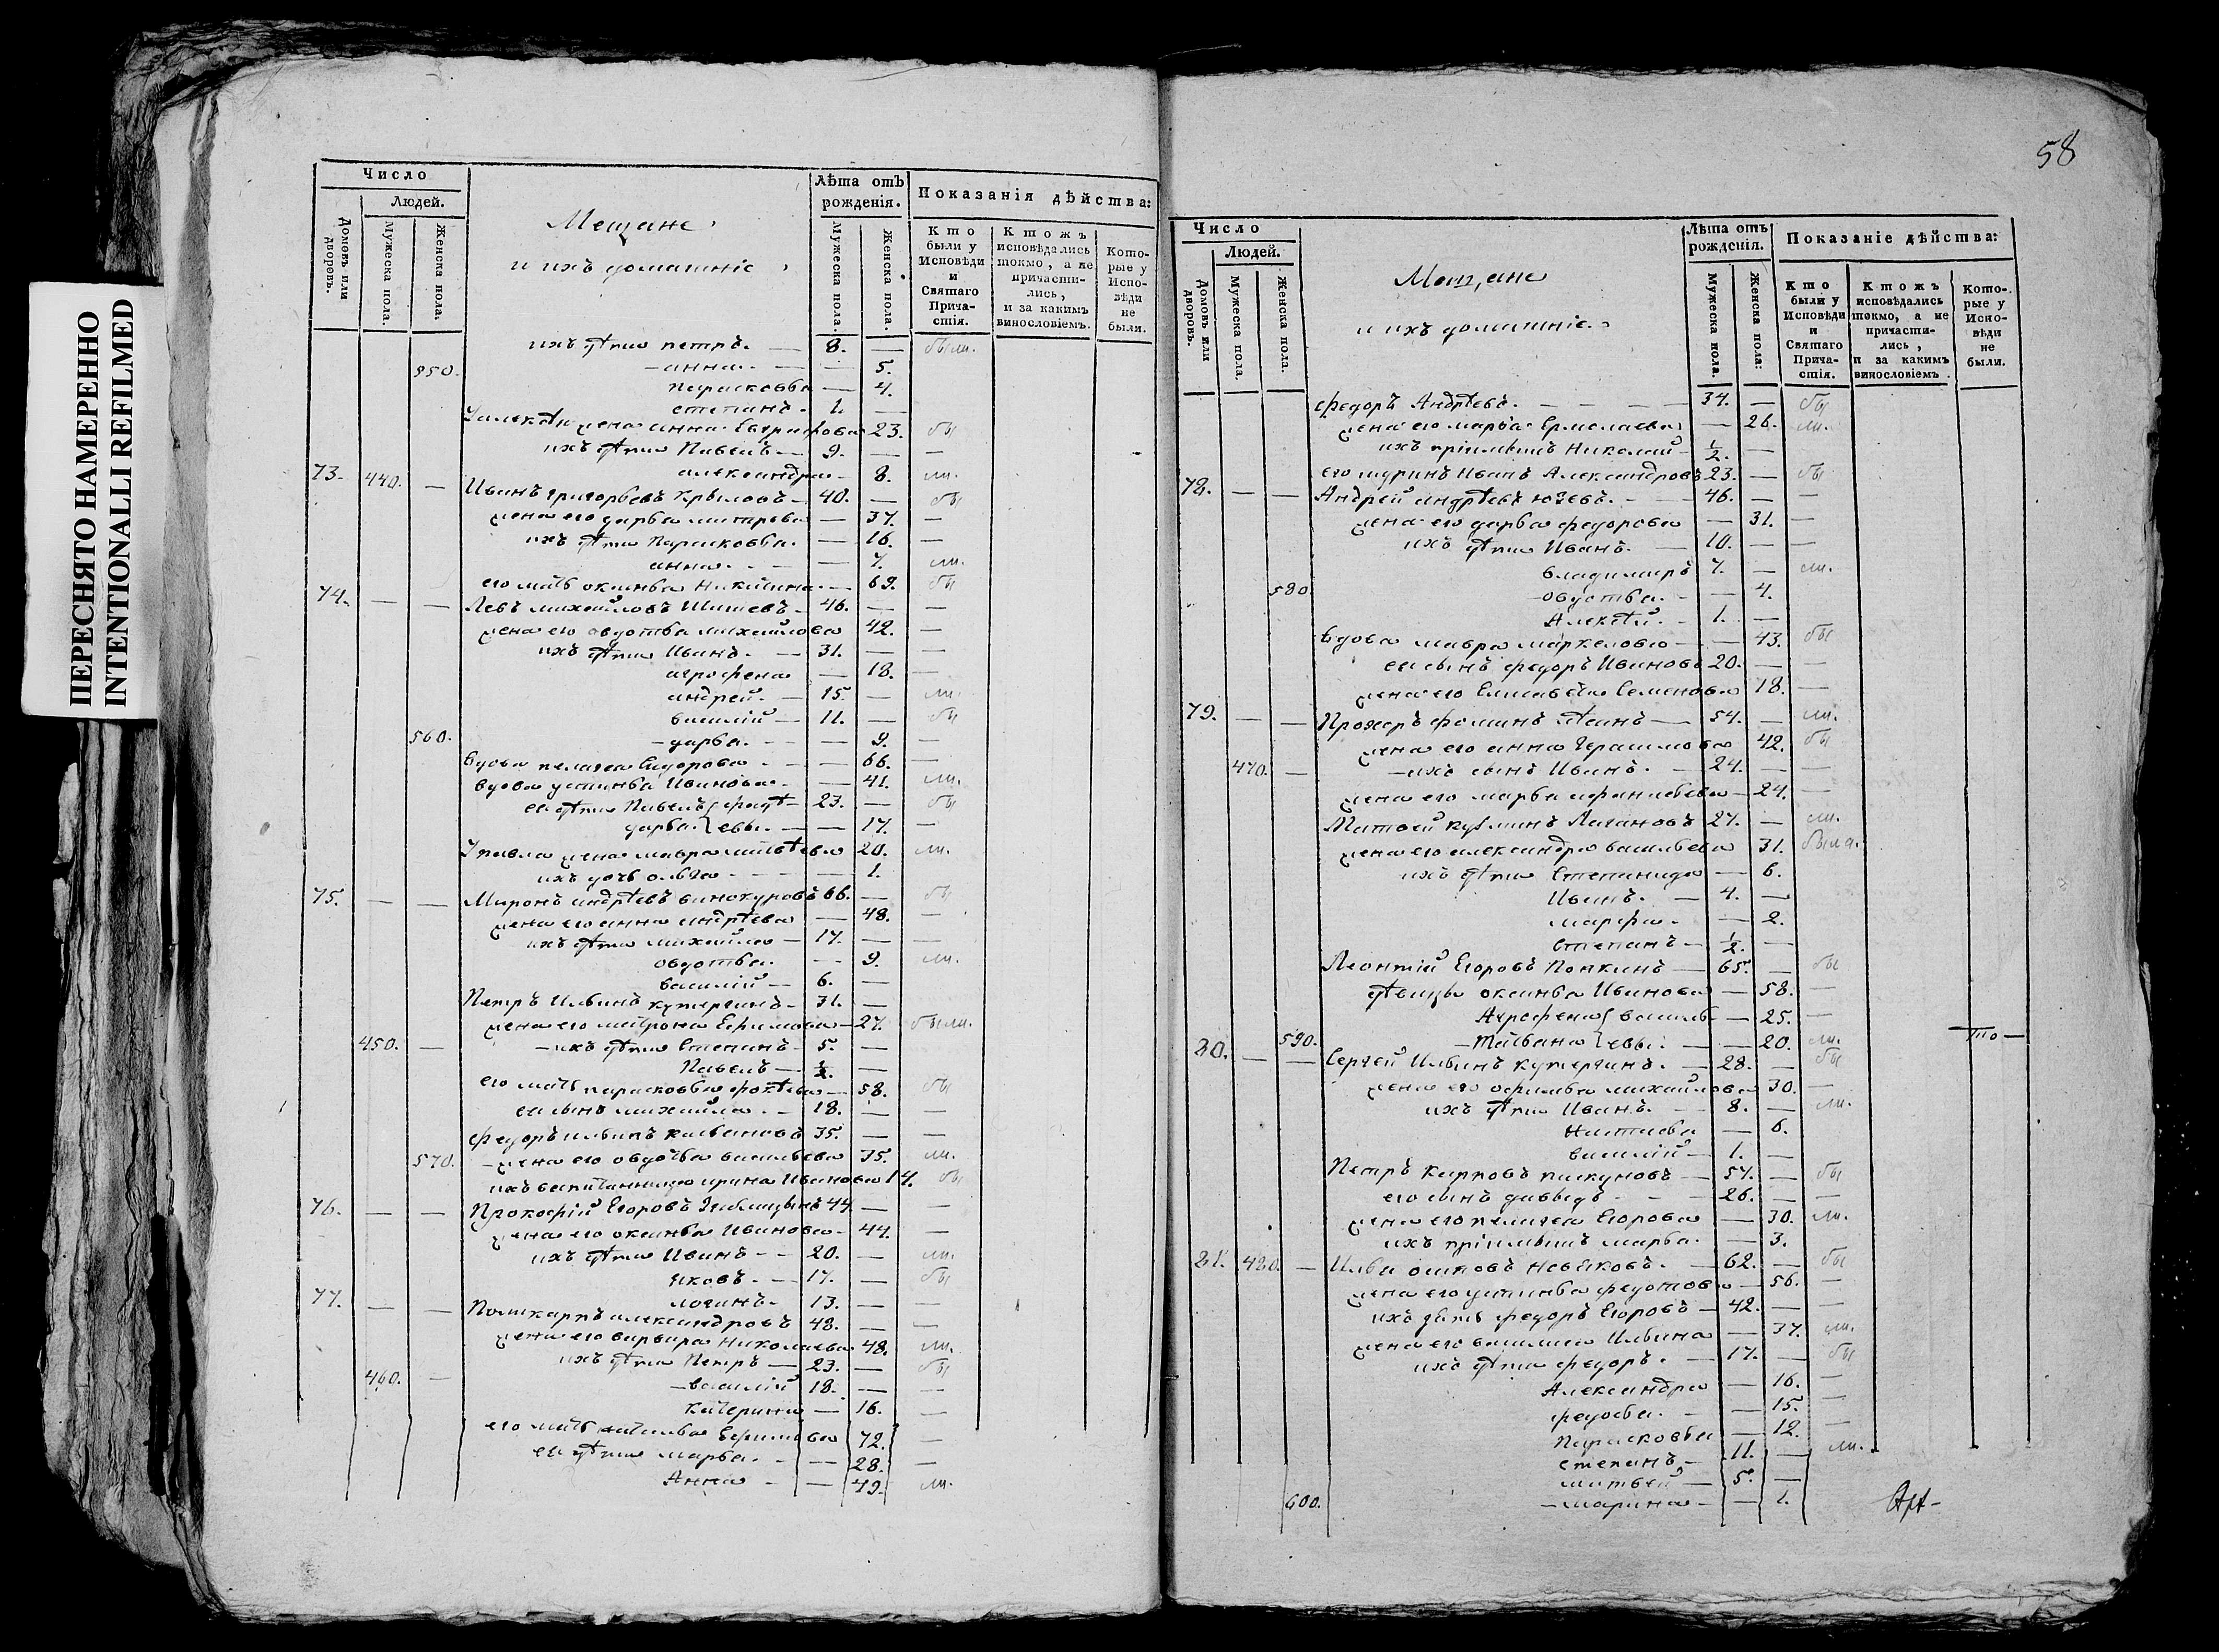 ПЕРЕСНЯТО НАМЕРЕННО
INTENTIONALLI REFILMED
Число
Людей.
Домовъ или дворовъ.
Мужеска пола.
Женска пола.
Мещане
и ихъ домашніе
Лѣта отъ рожденія.
Мужеска пола.
Женска пола.
Показанія дѣйства:
Кто были у Исповѣди и Святаго Причастія.
Ктожъ исповѣдались токмо, а не причастились, и за какимъ винословіемъ.
Которые у Исповѣди не были.
ихъ дѣти петръ. — 8. — были.
550. —анна. — — 5.
парасковья — 4.
степанъ. 1. —
У алексѣя жена анна Евграфова 23. бы
ихъ дѣти Павелъ — 9. — —
александра — 8. ли.
73. 440. — Иванъ григорьевъ Крыловъ — 40. — бы
жена его дарья митрева — 37. —
ихъ дѣти Парасковья. — 16. —
анна. — — 7. ли.
его мать оксинья Никитина — 69. бы
74. — — Левъ михайловъ Шишевъ — 46. — —
жена его овдотья михайлова 42. —
ихъ дѣти Иванъ. — 31. — —
агрофена — 18. —
андрей. — 15. — ли.
василій — 11. — бы
560. —дарья. — — 9. —
вдова пелагея Сидорова — — 66. —
вдова устинья Иванова. — 41. ли.
ея дѣти Павелъ 23. — бы
дарья евы. — — 17. —
У павла жена мавра матвѣева 20. ли.
ихъ дочь ольга — — 1.
75. — — Миронъ андрѣевъ винокуровъ 66. — бы
жена его анна андрѣева — 48. —
ихъ дѣти михайла — 17. — —
овдотья. — 9. ли.
василій — 6. —
Петръ Ильинъ кутергинъ — 31. —
жена его матрона Ефимова — 27. были.
450. — —ихъ дѣти Степанъ 5. —
Павелъ — ½. —
его мать парасковья фокѣева — 58. бы
ея сынъ михайла. — 18. — —
федоръ ильинъ 35. — —
570. —жена его овдотья васильева 35. ли.
ихъ воспитанница ирина Иванова 14. бы
76. — — Прокофій Егоровъ 44. — —
жена его оксинья Иванова — 44. —
ихъ дѣти Иванъ — 20. — ли.
яковъ. — 17. — бы
логинъ. 13. — —
77. — — Поликарпъ александровъ 48. — —
жена его варвара Николаева 48. ли.
ихъ дѣти Петръ — 23. — бы
460. — —василій 18. — —
катерина — 16. —
его мать Ефимова 72. —
ея дѣти марья. — — 28. —
Анна — — 49. ли.
58
Число
Людей.
Домовъ или дворовъ.
Мужеска пола.
Женска пола.
Мещане
и ихъ домашніе.
Лѣта отъ рожденія.
Мужеска пола.
Женска пола:
Показаніе дѣйства:
Кто были у Исповѣди и Святаго Причастія.
Ктожъ исповѣдались токмо, а не причастились, и за какимъ винословіемъ.
Которые у Исповѣди не были.
федоръ Андрѣевъ. — — — 34. — бы
жена его марья Ермолаева — 26. ли.
ихъ пріимышъ Николай — ½. —
его шуринъ Иванъ Александровъ 23. — бы
78. — — Андрей андрѣевъ юзевъ. — 46. — —
жена его дарья федорова — 31. —
ихъ дѣти Иванъ. — 10. — —
владимиръ 7. — ли.
580 —овдотья. — — 4.
Алексѣй. — 1. —
вдова мавра маркелова — — 43. бы
ея сынъ федоръ Ивановъ 20. — —
жена его Елисавета Семенова 18. —
79. — — Прохоръ фоминъ — 54. — ли.
жена его анна Герасимова 42. бы
470. — —ихъ сынъ Иванъ. — 24. — —
жена его марья афанасьева — 24. —
Матвей кузминъ Лагановъ 27. — ли.
жена его александра васильева 31. была.
ихъ дѣти Степанида — 6.
Иванъ. — 4. —
марфа. — — 2.
Степанъ — ½. —
Леонтій Егоровъ Попкинъ — 65. — бы
дѣвицы оксинья Иванова — 58. —
Агрофена василь — 25. —
590. —Татьяна евы. — — 20. ли. То—
80. — — Сергей Ильинъ кутергинъ. — 28. — бы
жена его офимья михайлова 30. —
ихъ дѣти Иванъ. — 8. — ли.
Настасья — 6.
василій — 1. —
Петръ Карповъ пискуновъ — 57. — бы
его сынъ давыдъ — — 26. — —
жена его пелагея Егорова — 30. ли.
ихъ пріимышъ марья. — 3.
81. 480. — Илья осиповъ — 62. — бы
жена его устинья федотова — 56. —
ихъ зять федоръ Егоровъ — 42. — —
жена его василиса Ильина — 37. ли.
ихъ дѣти федоръ. — 17. — бы
Александра — 16. —
федосья. — — 15. —
Парасковья — 12. —
степанъ — 11. — ли.
матвей — 5. —
600. —марина — — 1.